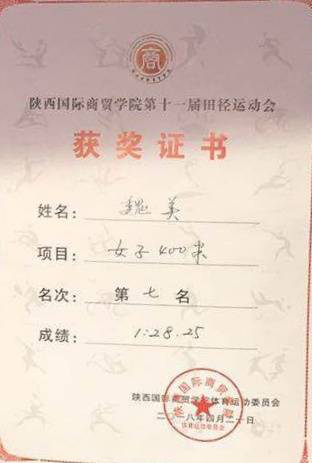 商
陕西国际商贸学院第十一届田径运动会
获奖证书
姓名: 魏美
项目: 女子400米
名次: 第七名
成绩: 1:28.25
陕西国际商贸学院体育运动委员会
二〇一八年四月二十日